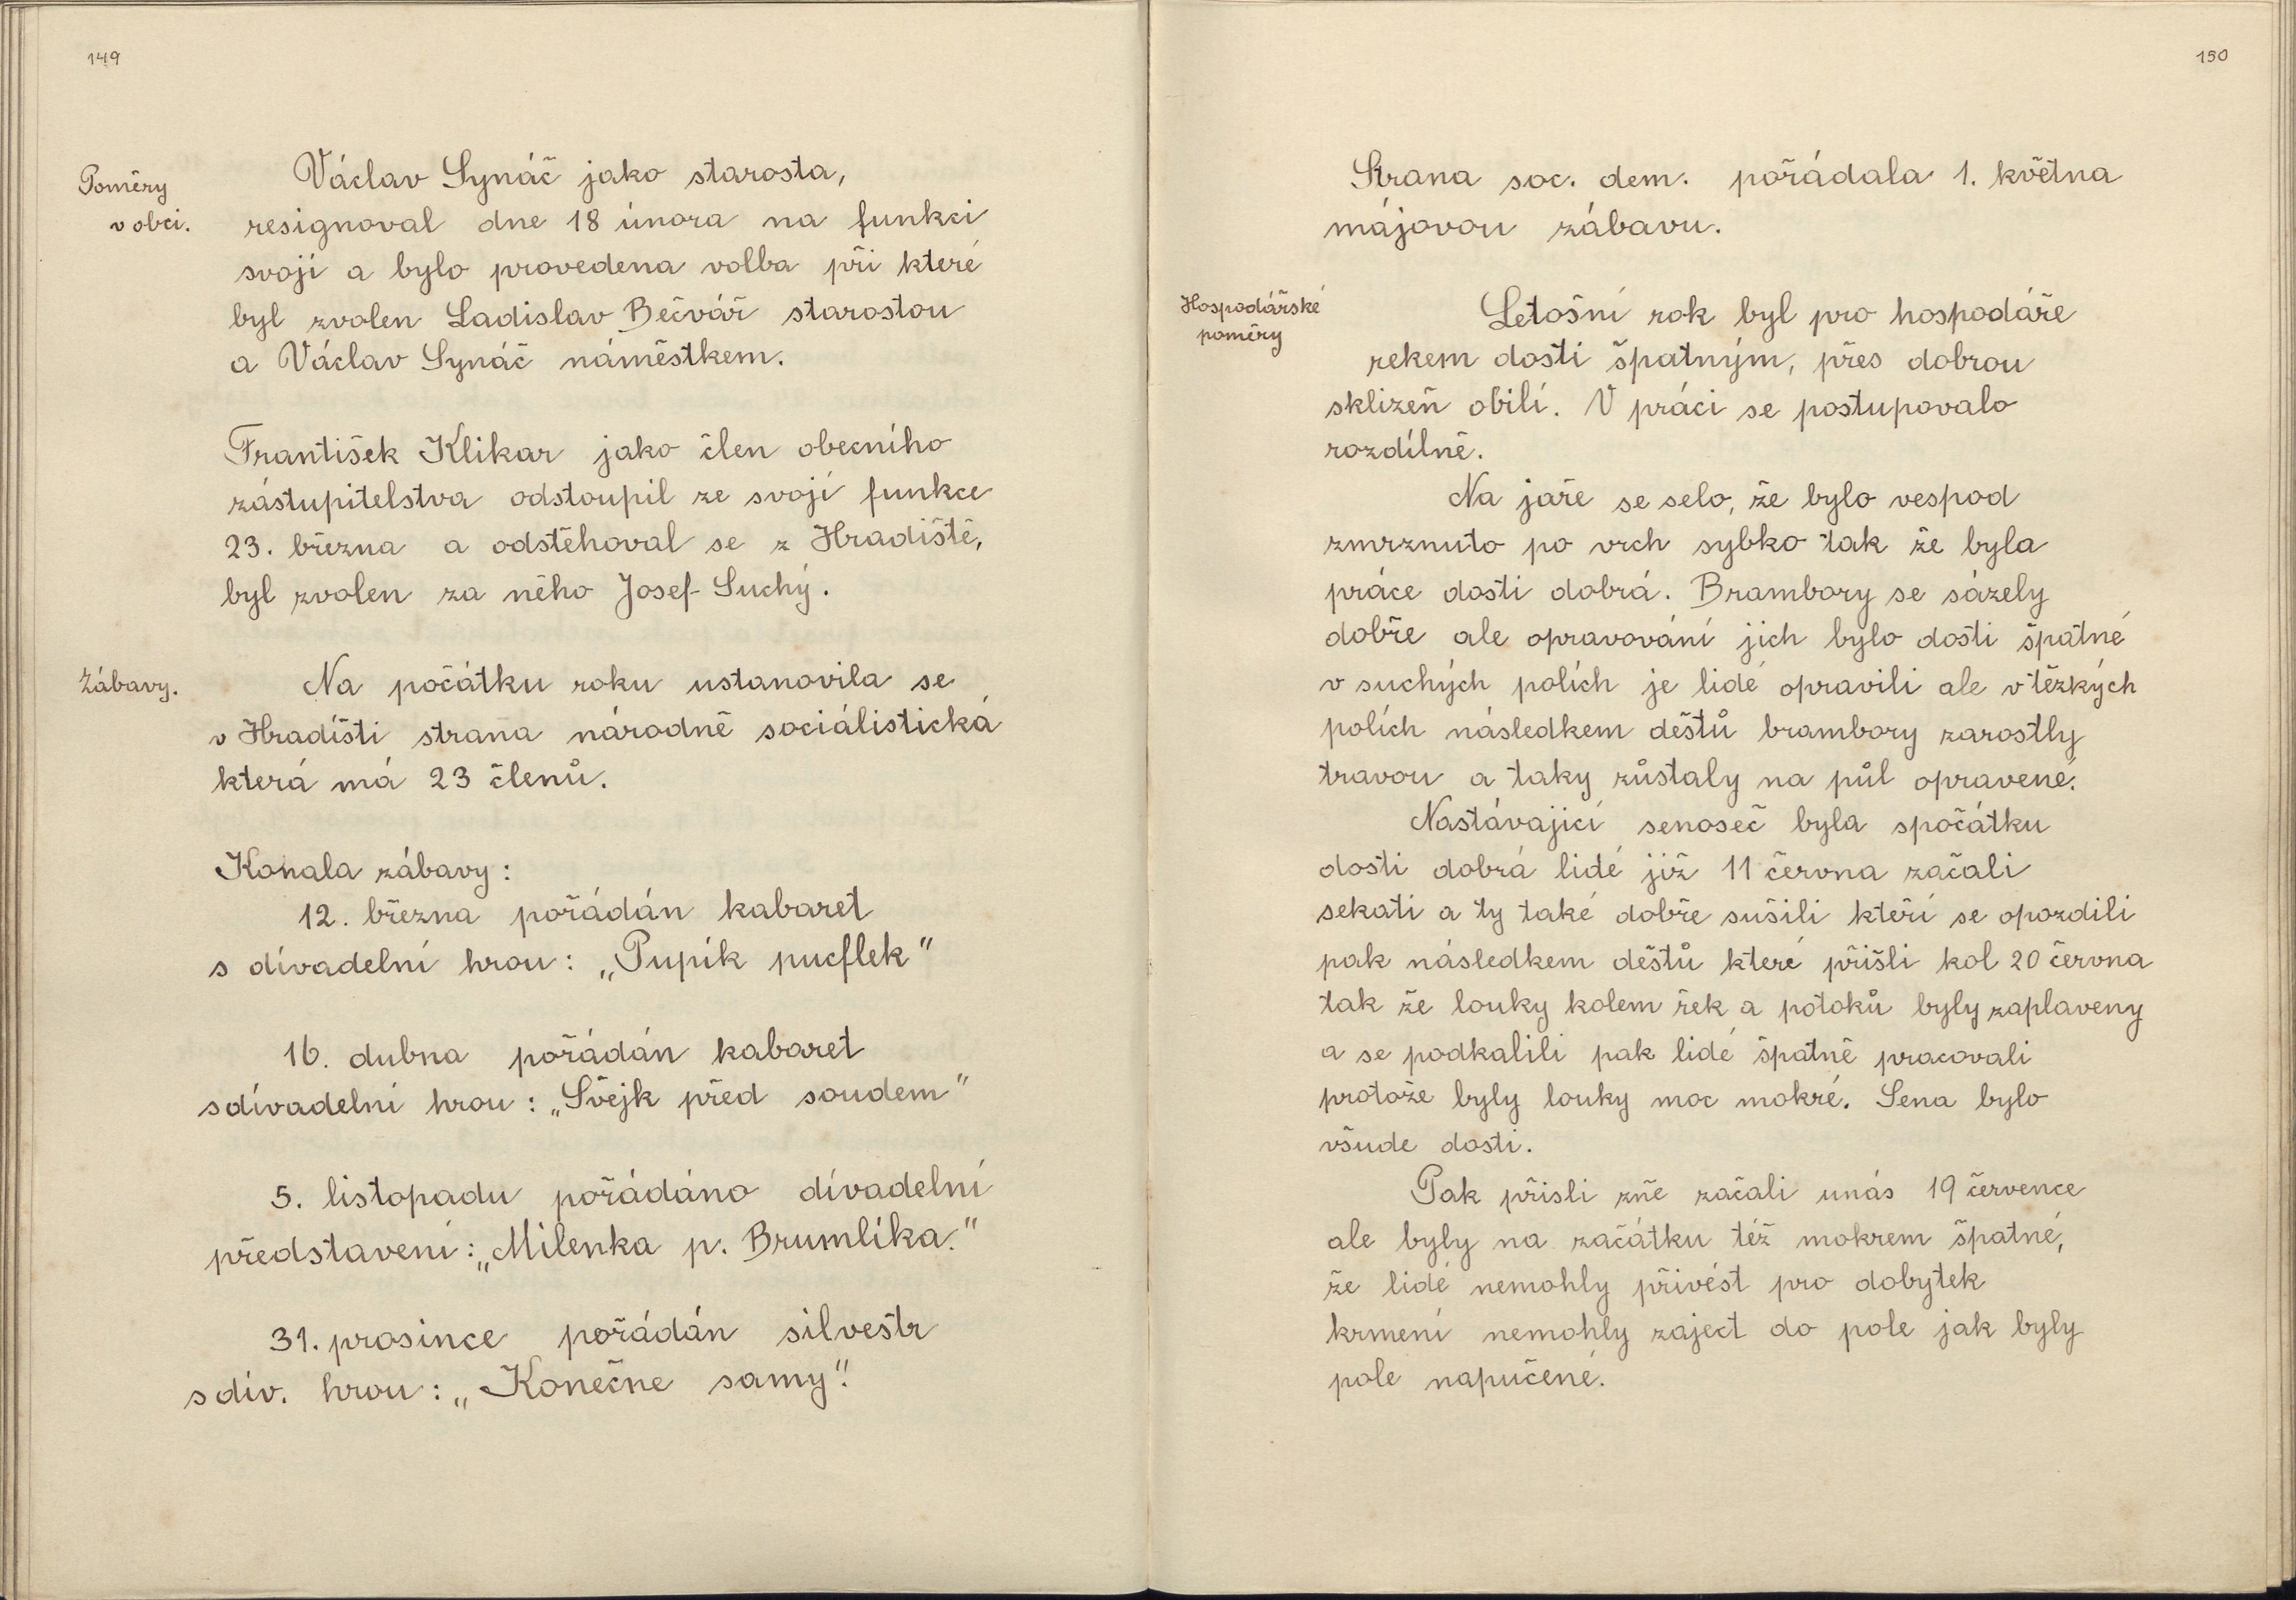 149
Poměry
v obci.
Václav Synáč jako starosta,
resignoval dne 18 února na funkci
svojí a bylo provedena volba při které
byl zvolen Ladislav Bečvář starostou
a Václav Synáč náměstkem.
František Klikar jako člen obecního
zástupitelstva odstoupil ze svojí funkce
23. března a odstěhoval se z Hradiště,
byl zvolen za něho Josef Suchý.
Zábavy.
Na počátku roku ustanovila se
v Hradíšti strana národně sociálistická
která má 23 členů.
Konala zábavy:
12. března pořádán kabaret
s dívadelní hrou: „Pupík pucflek"
16. dubna pořádán kabaret
sdívadelní hrou: „Švejk před soudem"
5. listopadu pořádáno dívadelní
představení: „Milenka p. Brumlíka."
31. prosince pořádán silvestr
s dív. hrou: „Konečne samy".
150
Strana soc. dem. pořádala 1. května
májovou zábavu.
Hospodářské
poměry
Letošní rok byl pro hospodáře
rekem dosti špatným, přes dobrou
sklizeň obilí. V práci se postupovalo
rozdílně.
Na jaře se selo, že bylo vespod
zmrznuto po vrch sybko tak že byla
práce dosti dobrá. Brambory se sázely
dobře ale opravování jich bylo dosti špatné
v suchých polích je lidé opravili ale v těžkých
polích následkem děštů brambory zarostly
travou a taky zůstaly na půl opravené.
Nastávajicí senoseč byla spočátku
dosti dobrá lidé již 11 června začali
sekati a ty také dobře sušili kteří se opozdili
pak následkem děštů které přišli kol 20 června
tak že louky kolem řek a potoků byly zaplaveny
a se podkalili pak lidé špatně pracovali
protože byly louky moc mokré. Sena bylo
všude dosti.
Pak přisli zně začali unás 19 července
ale byly na začátku též mokrem špatné,
že lidé nemohly přivést pro dobytek
krmení nemohly zaject do pole jak byly
pole napučené.